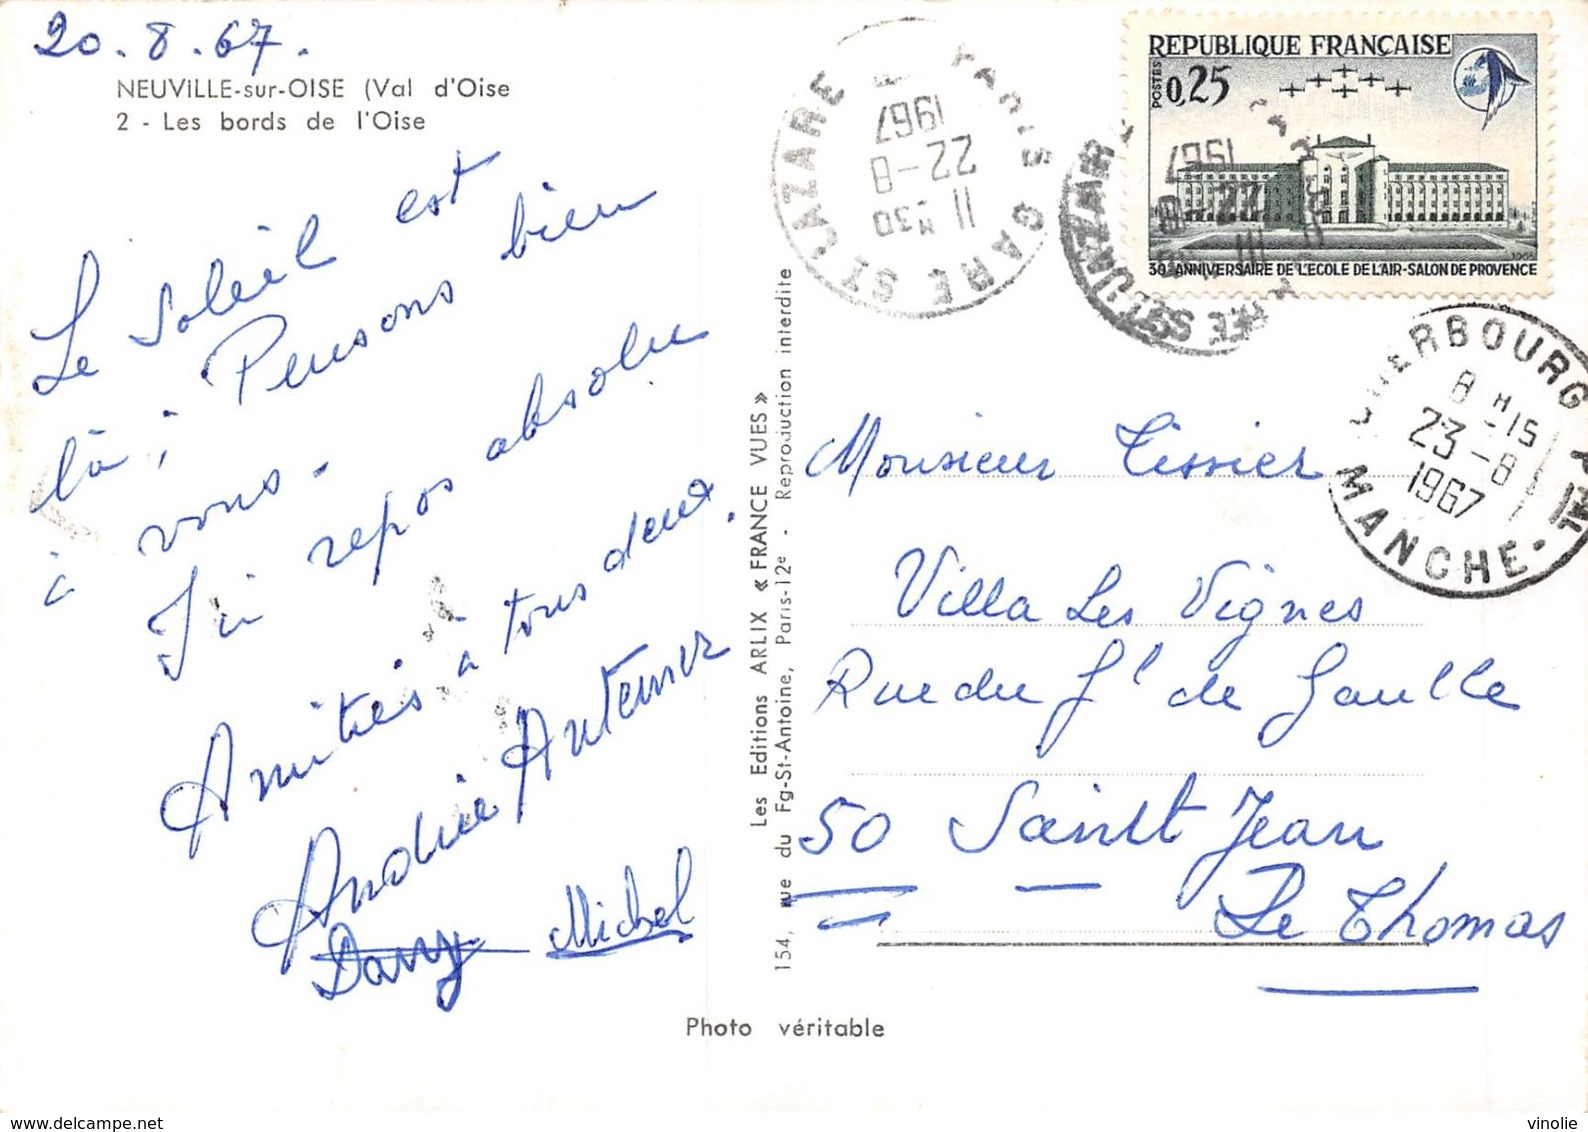 20.8.67.
NEUVILLE-sur-OISE (Val d'Oise
2 - Les bords de l'Oise
Le Soleil est
là ; Pensons bien
à vous.
Ici repos absolu
Amitiés à tous deux.
Andrée
Dany Michel
Les Editions ARLIX « FRANCE VUES »
154, rue du Fg-St-Antoine, Paris-12e - Reproduction interdite
Photo véritable
PARIS GARE ST LAZARE
11 H30
22-8
1967
REPUBLIQUE FRANÇAISE
POSTES
0,25
30e ANNIVERSAIRE DE L'ECOLE DE L'AIR-SALON DE PROVENCE
CHERBOURG PPAL
8 H15
23-8
1967
MANCHE
Monsieur Tissier
Villa Les Vignes
Rue du Gl de Gaulle
50 Saint Jean
Le Thomas
www.delcampe.net
vinolie